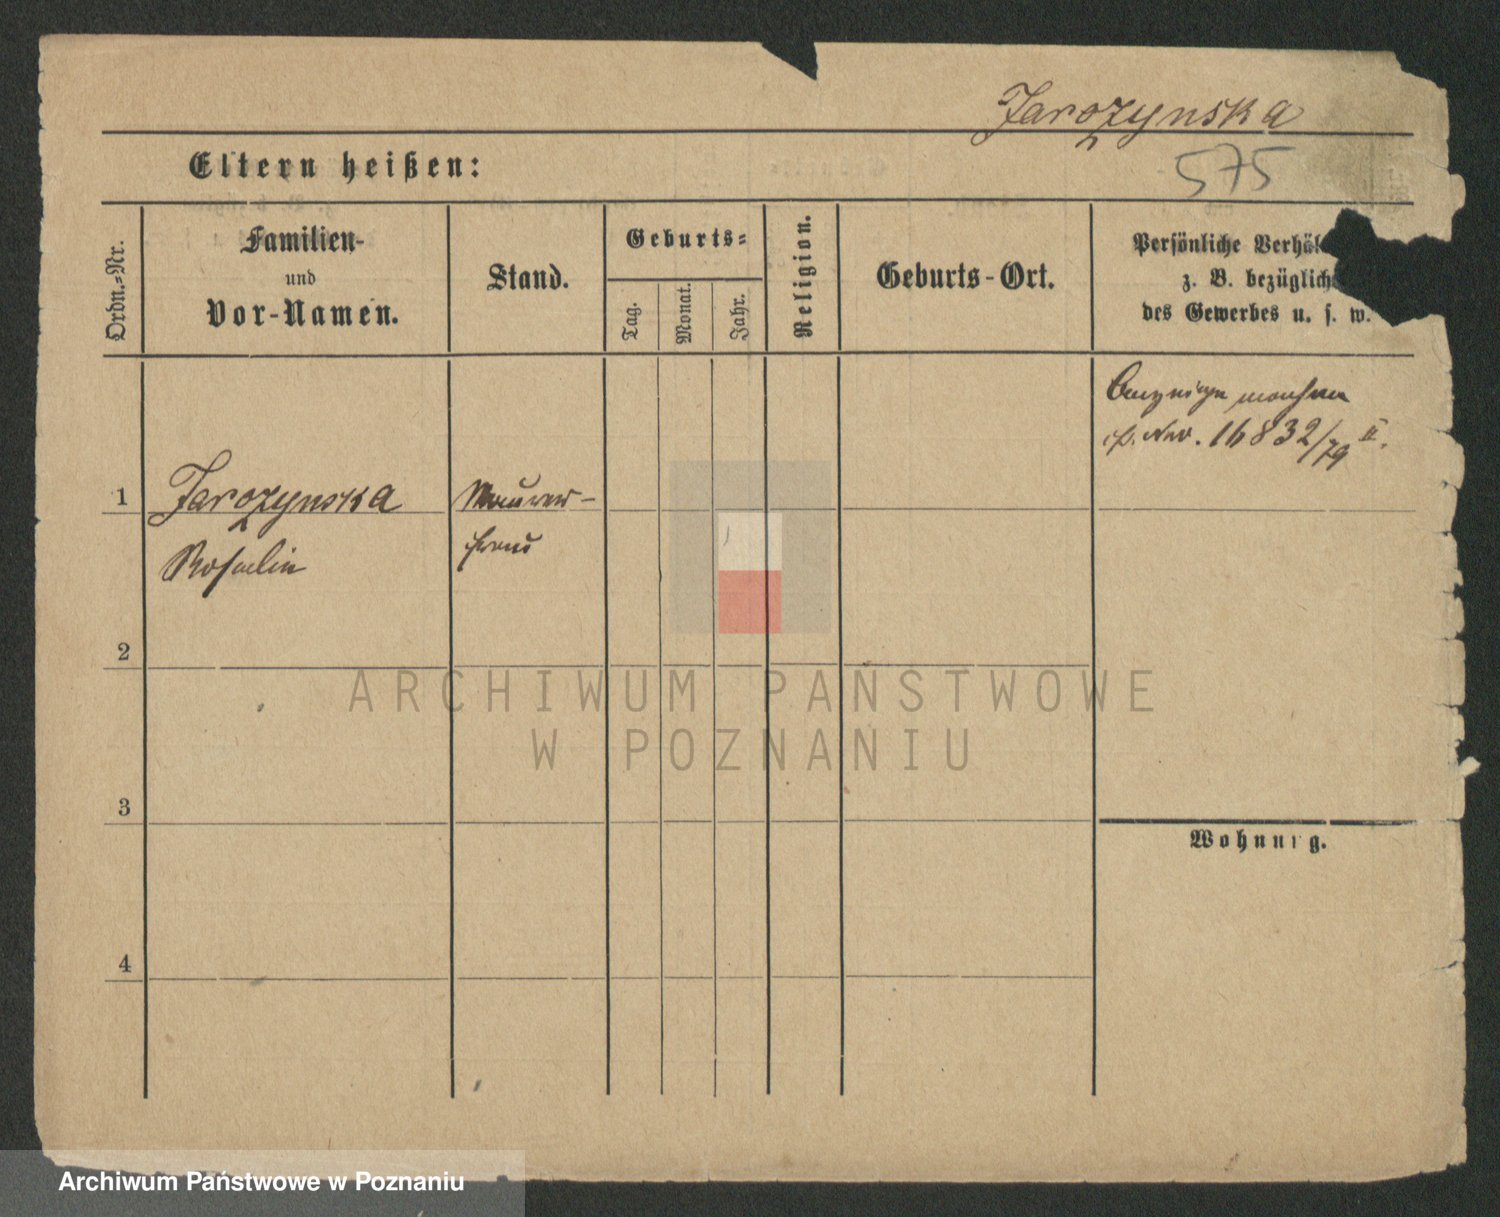 Jarozynska
Eltern heißen:
575
Ordn.-Nr.
Familien-
und
Vor-Namen.
Stand.
Geburts-
Tag.
Monat.
Jahr.
Religion.
Geburts-Ort.
Persönliche Verhäl
z. B. bezüglich
des Gewerbes u. s. w.
16832/79 II.
1
Jarozynska
Maurer-
frau
Rosalie
2
3
4
Wohnung.
ARCHIWUM PAŃSTWOWE
W POZNANIU
Archiwum Państwowe w Poznaniu